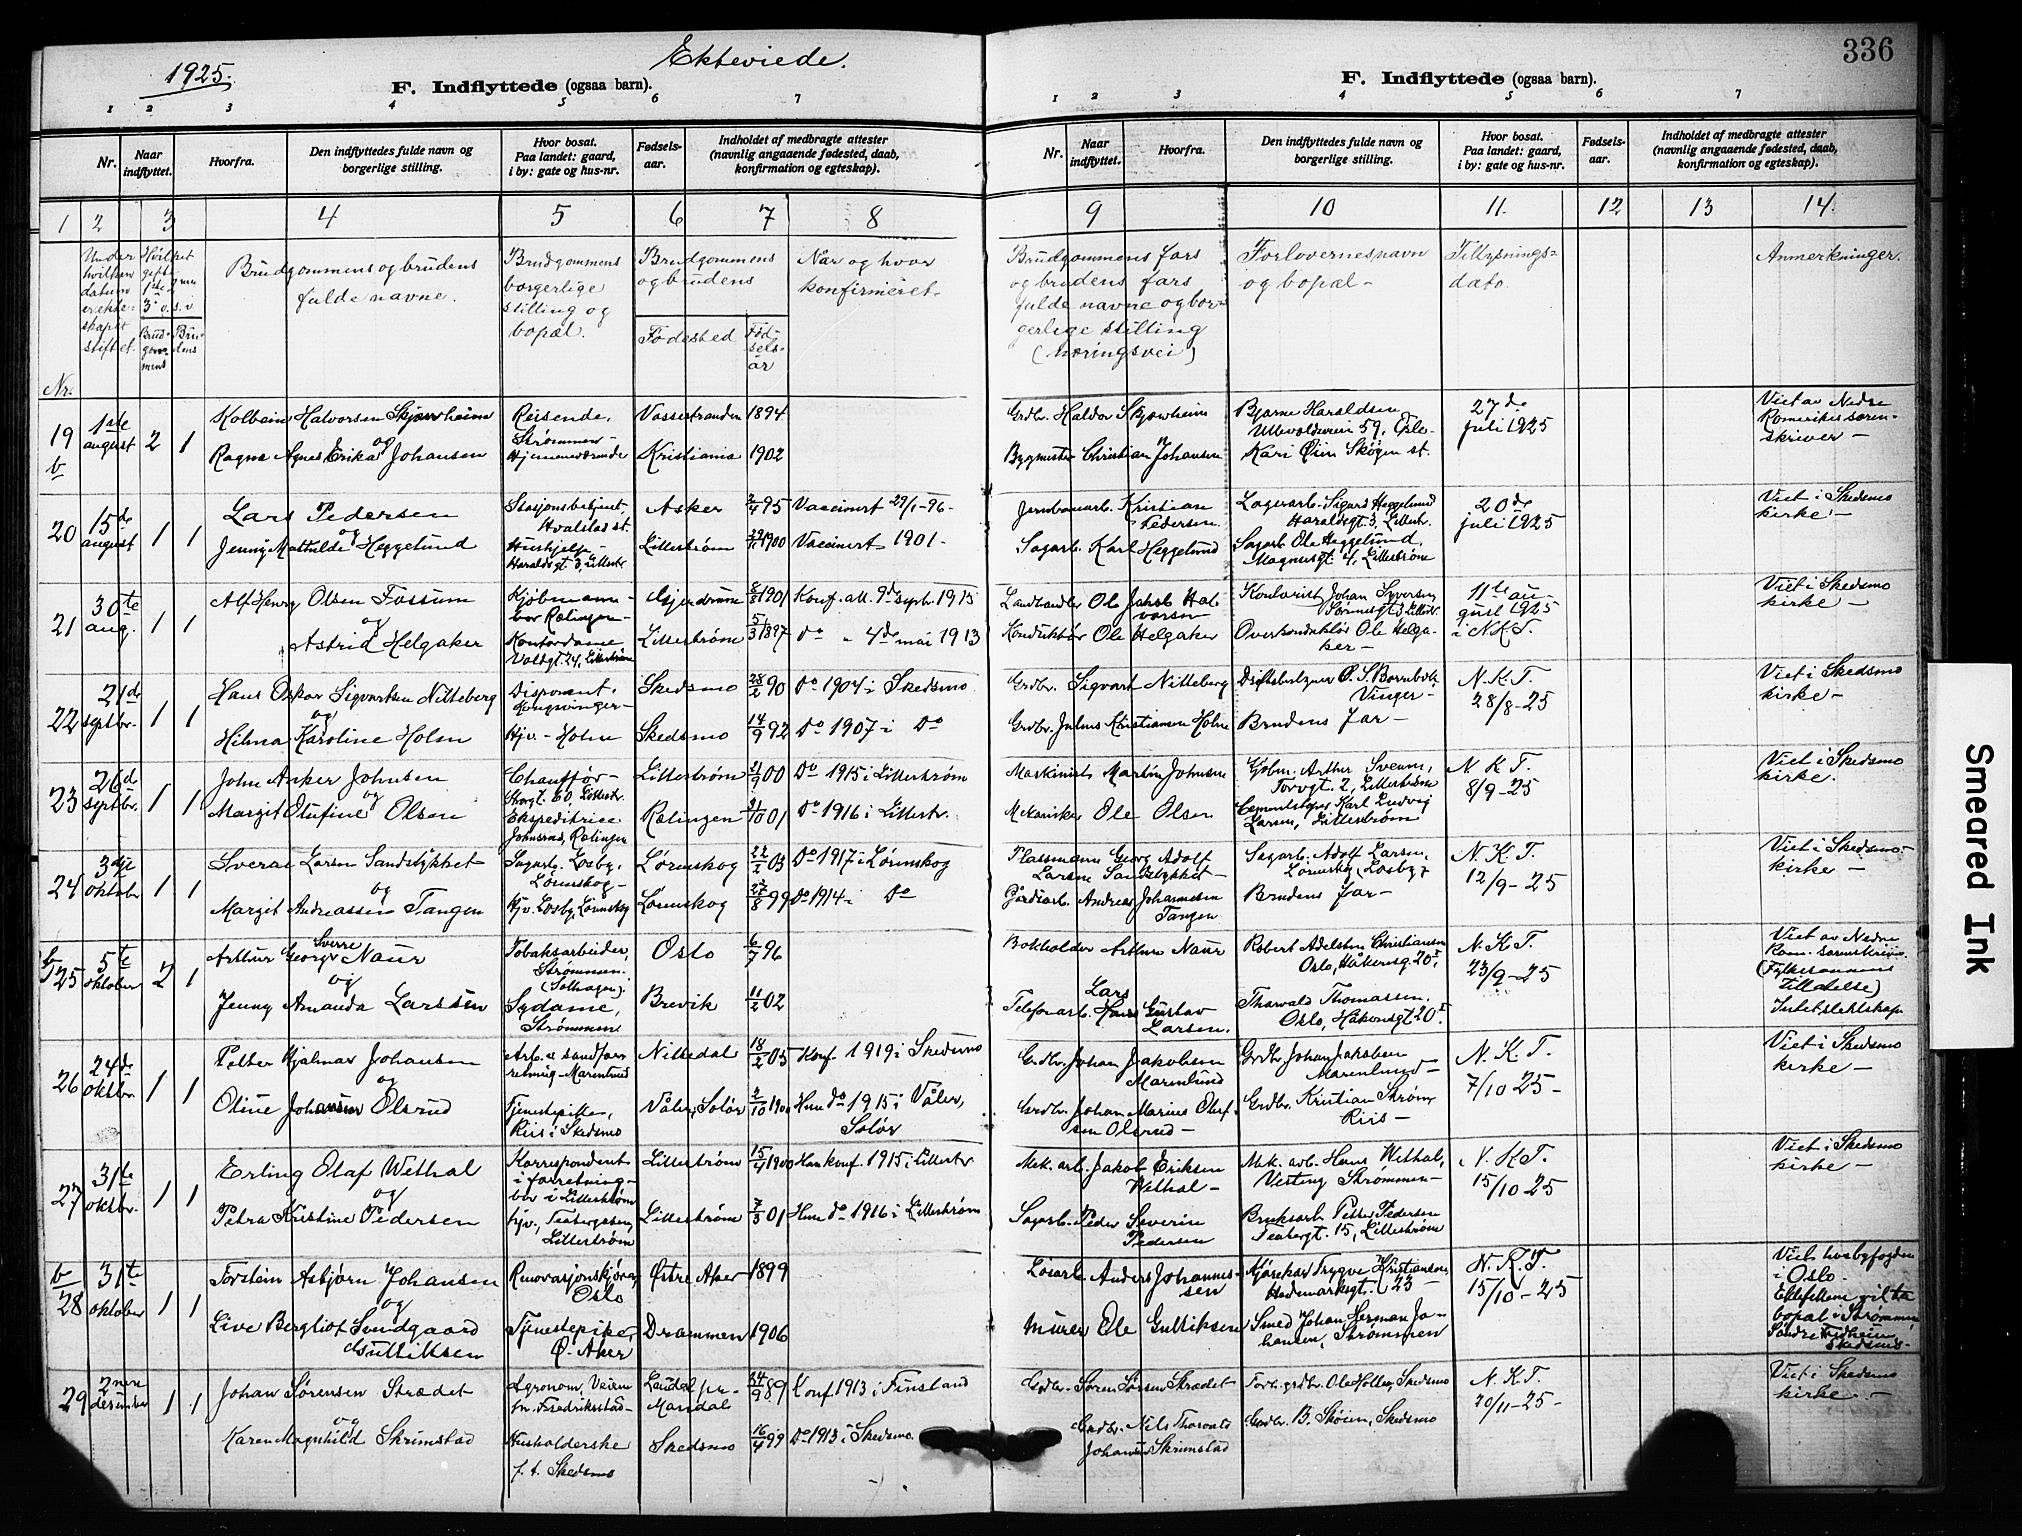 1925.
Ekteviede.
336
F. Indflyttede (ogsaa barn).
F. Indflyttede (ogsaa barn).
1 2 3 4 5 6 7
1 2 3 4 5 6 7
Nr.
Naar indflyttet.
Hvorfra.
Den indflyttedes fulde navn og borgerlige stilling.
Hvor bosat. Paa landet: gaard, i by: gate og hus-nr.
Fødsels-aar.
Indholdet af medbragte attester (navnlig angaaende fødested, daab, konfirmation og egteskap).
Nr.
Naar indflyttet.
Hvorfra.
Den indflyttedes fulde navn og borgerlige stilling.
Hvor bosat. Paa landet: gaard, i by: gate og hus-nr.
Fødsels-aar.
Indholdet af medbragte attester (navnlig angaaende fødested, daab, konfirmation og egteskap).
1 2 3 4 5 6 7 8 9 10 11. 12 13 14.
Nr.
Under hvilken datum er ekteskapet stiftet.
Hvilket gifte 1ste 2net 3 o.s.v
Brudgommens
Brudens
Brudgommens og brudens fulde navne.
Brudgommens borgerlige stilling og bopæl.
Brudgommens og brudens
Fødested
Fødselsår
Når og hvor konfirmeret.
Brudgommens fars og brudens fars fulde navne og borgerlige stilling (næringsvei)
Forlovernes navn og bopæl-
Tillysnings-dato.
Anmerkninger.
19 b
1ste august
2 1
Kolbein Halvorsen Skjerveheim
og
Ragna Agnes Erika Johansen
Reisende, Strømmen-
Hjemmeværende
Vossestranden 1894
Kristiania 1902
Grdbr. Haldor Skjerveheim
Bygmester Christian Johansen
Bjarne Haraldsen Ullevoldsveien 59, Oslo-
Kari Øien Skøyen st.
27de juli 1925
Viet av Nedre Romerikes sorenskriver-
20
15de august
1 1
Lars Pedersen
og
Jenny Mathilde Heggelund
Stasjonsbetjent, Hvalstad st.
Hushjelp- Haraldsgt. 3, Lillestr.
Asker 2/4 95
Lillestrøm 1900
Vaccinert 29/1-96-
Vaccinert 1901-
Jernbanearb. Kristian Pedersen
Sagarb. Karl Heggelund
Lagerarb. Sigurd Heggelund Haraldsgt. 3, Lillestr.
Sagarb. Ole Heggelund, Magnusgt. 4, Lillestrøm
20de juli 1925
Viet i Skedsmo kirke-
21
30te aug.
1 1
Alf Henry Olsen Fossum
og
Astrid Helgaker
Kjøbmann- bor Rælingen-
Kontordame Voldgt. 24, Lillestrøm
Gjerdrum 8/8 1901
Lillestrøm 5/3 1897
Konf. att. 9de septbr. 1915
Do " 4de mai 1913
Landhandler Ole Jakob Halvorsen
Konduktør Ole Helgaker
Kontorist Johan Syversen Sørumsgt. 3 Lillestr.
Overkonduktør Ole Helgaker-
11te august 1925 i N.K.T.
Viet i Skedsmo kirke-
22
21de septbr.
1 1
Hans Oskar Sigvartsen Nitteberg
og
Hilma Karoline Holm
Disponent. Kongsvinger-
Hjv.- Holm
Skedsmo 28/2 90
Skedsmo 14/9 92
Do 1904 i Skedsmo
Do 1907 i Do
Grdbr. Sigvart Nitteberg
Grdbr. Julius Kristiansen Holm
Driftsbestyrer Ø. S. Bornholt Vinger-
Brudens far-
N.K.T. 28/8-25
Viet i Skedsmo kirke-
23
26de septbr.
1 1
John Asker Johnsen
og
Margit Olufine Olsen
Chauffør- Storgt. 60, Lillestr.
Ekspeditrice Johnsrud, Rælingen
Lillestrøm 21/9 00
Rælingen 21/10 01
Do 1915 i Lillestrøm
Do 1916 i Lillestr.
Maskinist Martin Johnsen
Mekaniker Ole Olsen
Kjøbm. Arthur Sveum, Torvgt. 2, Lillestrøm
Cementstøper Karl Ludvig Larsen, Lillestrøm
N.K.T. 8/9-25
Viet i Skedsmo kirke.
24
3dje oktober
1 1
Sverre Larsen Sandstykket
og
Margit Andreassen Tangen
Sagarb. Losby, Lørenskog-
Hjv. Losby, Lørenskog
Lørenskog 22/2 03
Lørenskog 27/8 99
Do 1917 i Lørenskog
Do 1914 i Do
Plassmann Georg Adolf Larsen Sandstykket-
Gårdsarb. Andreas Johannesen Tangen
Sagarb. Adolf Larsen, Lørenskog (Losby)
Brudens far-
N.K.T. 12/9-25
Viet i Skedsmo kirke-
b 25
5te oktober
2 1
Arthur Georg Sverre Naur
og
Jenny Amanda Larssen
Tobaksarbeider, Strømmen. (Solhagen).
Sydame, Strømmen
Oslo 6/7 96
Brevik 11/2 02
Bokholder Arthur Naur
Telefonarb. Lars Gustav Larsen.
Robert Adelsten Christiansen Oslo, Håkonsg. 20I,
Tharvald Thomassen, Oslo, Håkonsgt. 20I.
N.K.T. 23/9-25
Viet av Nedre Rom. sorenskriver. (Fylkesmannens tillatelse) Intet slektskap
26
24de oktbr.
1 1
Petter Hjalmar Johansen
og
Oline Johansen Olsrud
Arb. v. sandforretning-Marenlund
Tjenestepike-, Riis i Skedsmo
Nittedal 18/2 05
Våler, Solør 2/10 1900
Konf. 1919 i Skedsmo
Hun do 1915 i Våler, Solør
Grdbr. Johan Jakobsen Marenlund
Grdbr. Johan Marius Olufsen Olsrud-
Grdbr. Johan Jakobsen Marenlund-
Grdbr. Kristian Strøm, Riis-
N.K.T. 7/10 25-
Viet i Skedsmo kirke-
27
31te oktbr.
1 1
Erling Olaf Wethal
og
Petra Kristine Pedersen
Korrespondent i forretning- bor i Lillestrøm
Hjv., Teatergaten, Lillestrøm
Lillestrøm 15/4 1900
Lillestrøm 7/3 01
Han konf. 1915 i Lillestr
Hun do 1916 i Lillestrøm
Mek. arb. Jakob Eriksen Wethal-
Sagarb. Peder Severin Pedersen
Mek. arb. Hans Wethal, Vesteng Strømmen-
Bruksarb. Petter Pedersen Teatergt. 15, Lillestrøm
N.K.T. 15/10-25
Viet i Skedsmo kirke-
b 28
31te oktober
1 1
Torstein Asbjørn Johansen
og
Live Bergliot Sundgaard Gulliksen
Renovasjonskjører, Oslo
Tjenestepike, Ø. Aker
Østre Aker 1899
Drammen 1906
Løsarb. Anders Johannessen
Murer Ole Gulliksen
Kjørekar Trygve Kristiansen, Hedemarksgt. 23-
Smed Johan Herman Johansen, Strømmen
N.K.T. 15/10-25
Viet hos byfogden i Oslo. Ektefellene vil ta bopæl i Strømmen, Søndre Fridheim, Skedsmo-
29
2nen desember
1 1
Johan Sørensen Strædet
og
Karen Magnhild Skrimstad
Agronom, Veien pr. Fredriksstad-
Husholderske f. t. Skedsmo
Laudal pr. Mandal 24/9 89
Skedsmo 16/4 99
Konf. 1913 i Finsland
Do 1913 i Skedsmo.
Grdbr. Søren Sørsen Strædet
Grdbr. Nils Thorvald Johansen Skrimstad
Forh. grdbr. Ole Holler, Skedsmo
Grdbr. B. Skøien, Skedsmo
N.K.T. 20/11-25-
Viet i Skedsmo kirke-
Smeared Ink